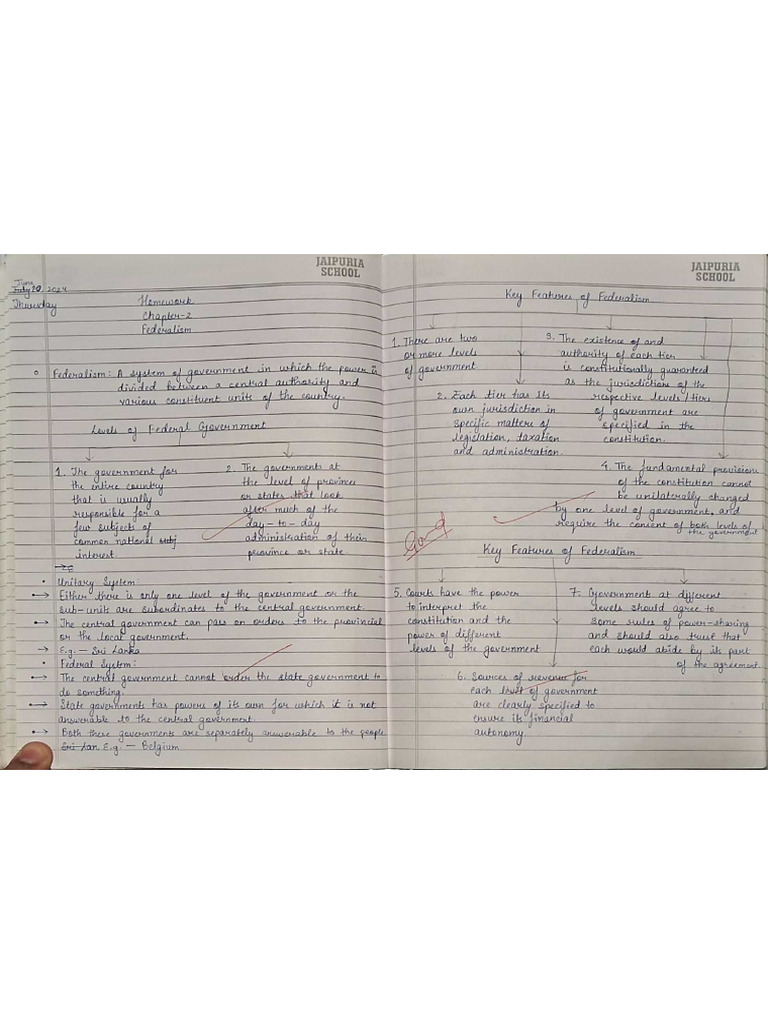 JAIPURIA
SCHOOL
June
July 20, 2024
Thursday
Homework
Chapter-2
Federalism
Federalism: A system of government in which the power is
divided between a central authority and
various constituent units of the country.
Levels of Federal Government
1. The government for
the entire country
that is usually
responsible for a
few subjects of
common national subj
interest
2. The governments at
the level of provinces
or states that look
after much of the
day-to-day
administration of their
province or state.
• Unitary System:
→ Either there is only one level of the government or the
sub-units are subordinates to the central government.
→ The central government can pass on orders to the provincial
or the local government.
→ E.g. – Sri Lanka
• Federal System:
→ The central government cannot order the state government to
do something.
→ State governments has powers of its own for which it is not
answerable to the central government.
→ Both these governments are separately answerable to the people.
Sri Lan E.g. – Belgium
JAIPURIA
SCHOOL
Key Features of Federalism
1. There are two
or more levels
of government
2. Each tier has its
own jurisdiction in
specific matters of
legislation, taxation
and administration.
3. The existence of and
authority of each tier
is constitutionally guaranteed
as the jurisdictions of the
respective levels/tiers
of government are
specified in the
constitution.
4. The fundamental provisions
of the constitution cannot
be unilaterally changed
by one level of government, and
require the consent of both levels of
the government
Good
Key Features of Federalism
5. Courts have the power
to interpret the
constitution and the
power of different
levels of the government
6. Sources of revenue for
each level of government
are clearly specified to
ensure its financial
autonomy
7. Governments at different
levels should agree to
some rules of power-sharing
and should also trust that
each would abide by its part
of the agreement.